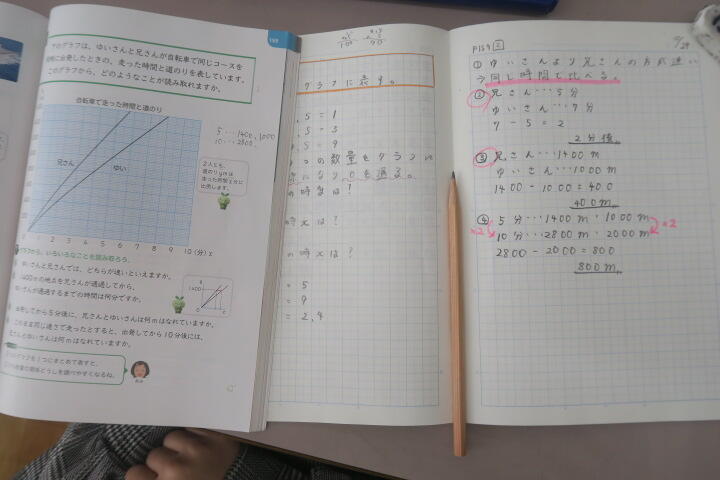 159
下のグラフは、ゆいさんと兄さんが自転車で同じコースを
に出発したときの、走った時間と道のりを表しています。
このグラフから、どのようなことが読み取れますか。
自転車で走った時間と道のり
兄さん
ゆい
0 1 2 3 4 5 6 7 8 9 10 (分) x
5…1400,1000
10…2800.
2人とも、
道のりymは
走った時間x分に
比例します。
グラフから、いろいろなことを読み取ろう。
ゆいさんと兄さんでは、どちらが速いといえますか。
1400mの地点を兄さんが通過してから、
ゆいさんが通過するまでの時間は何分ですか。
1400
出発してから5分後に、兄さんとゆいさんは何mはなれていますか。
このまま同じ速さで走ったとすると、出発してから10分後には、
兄さんとゆいさんは何mはなれていますか。
グラフを1つにまとめて表すと、
の関係どうしを調べやすくなるね。
グラフに表す。
5 = 1
5 = 3
5 = 9
の数量をグラフに
になり0を通る。
の時yは?
時xは?
の時xは?
= 5
= 9
= 2,4
P159 2
/29
① ゆいさんより兄さんの方が速い
→ 同じ時間で比べる。
② 兄さん…5分
ゆいさん…7分
7 - 5 = 2
2分後
③ 兄さん…1400m
ゆいさん…1000m
1400 - 1000 = 400
400m
④ 5分…1400m・1000m
×2 10分…2800m・2000m ×2
2800 - 2000 = 800
800m